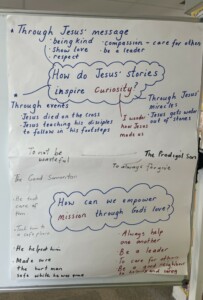 * Through Jesus' message
• being kind
• compassion - care for others
• show love
• be a leader
respect
How do Jesus' stories
inspire Curiosity?
Through events
Jesus died on the cross
Jesus teaching his disciples
to follow in his footsteps
I wonder
how Jesus
made
Through Jesus'
miracles
• Jesus gets water
out of stones
To not be
wasteful
The Prodigal Son
To always forgive
The Good Samaritan
How can we empower
Mission through Gods love?
He helped him
Made sure
the hurt man
safe while he was
Always help
one another
Be a leader
To care for others
Be a good neighbour